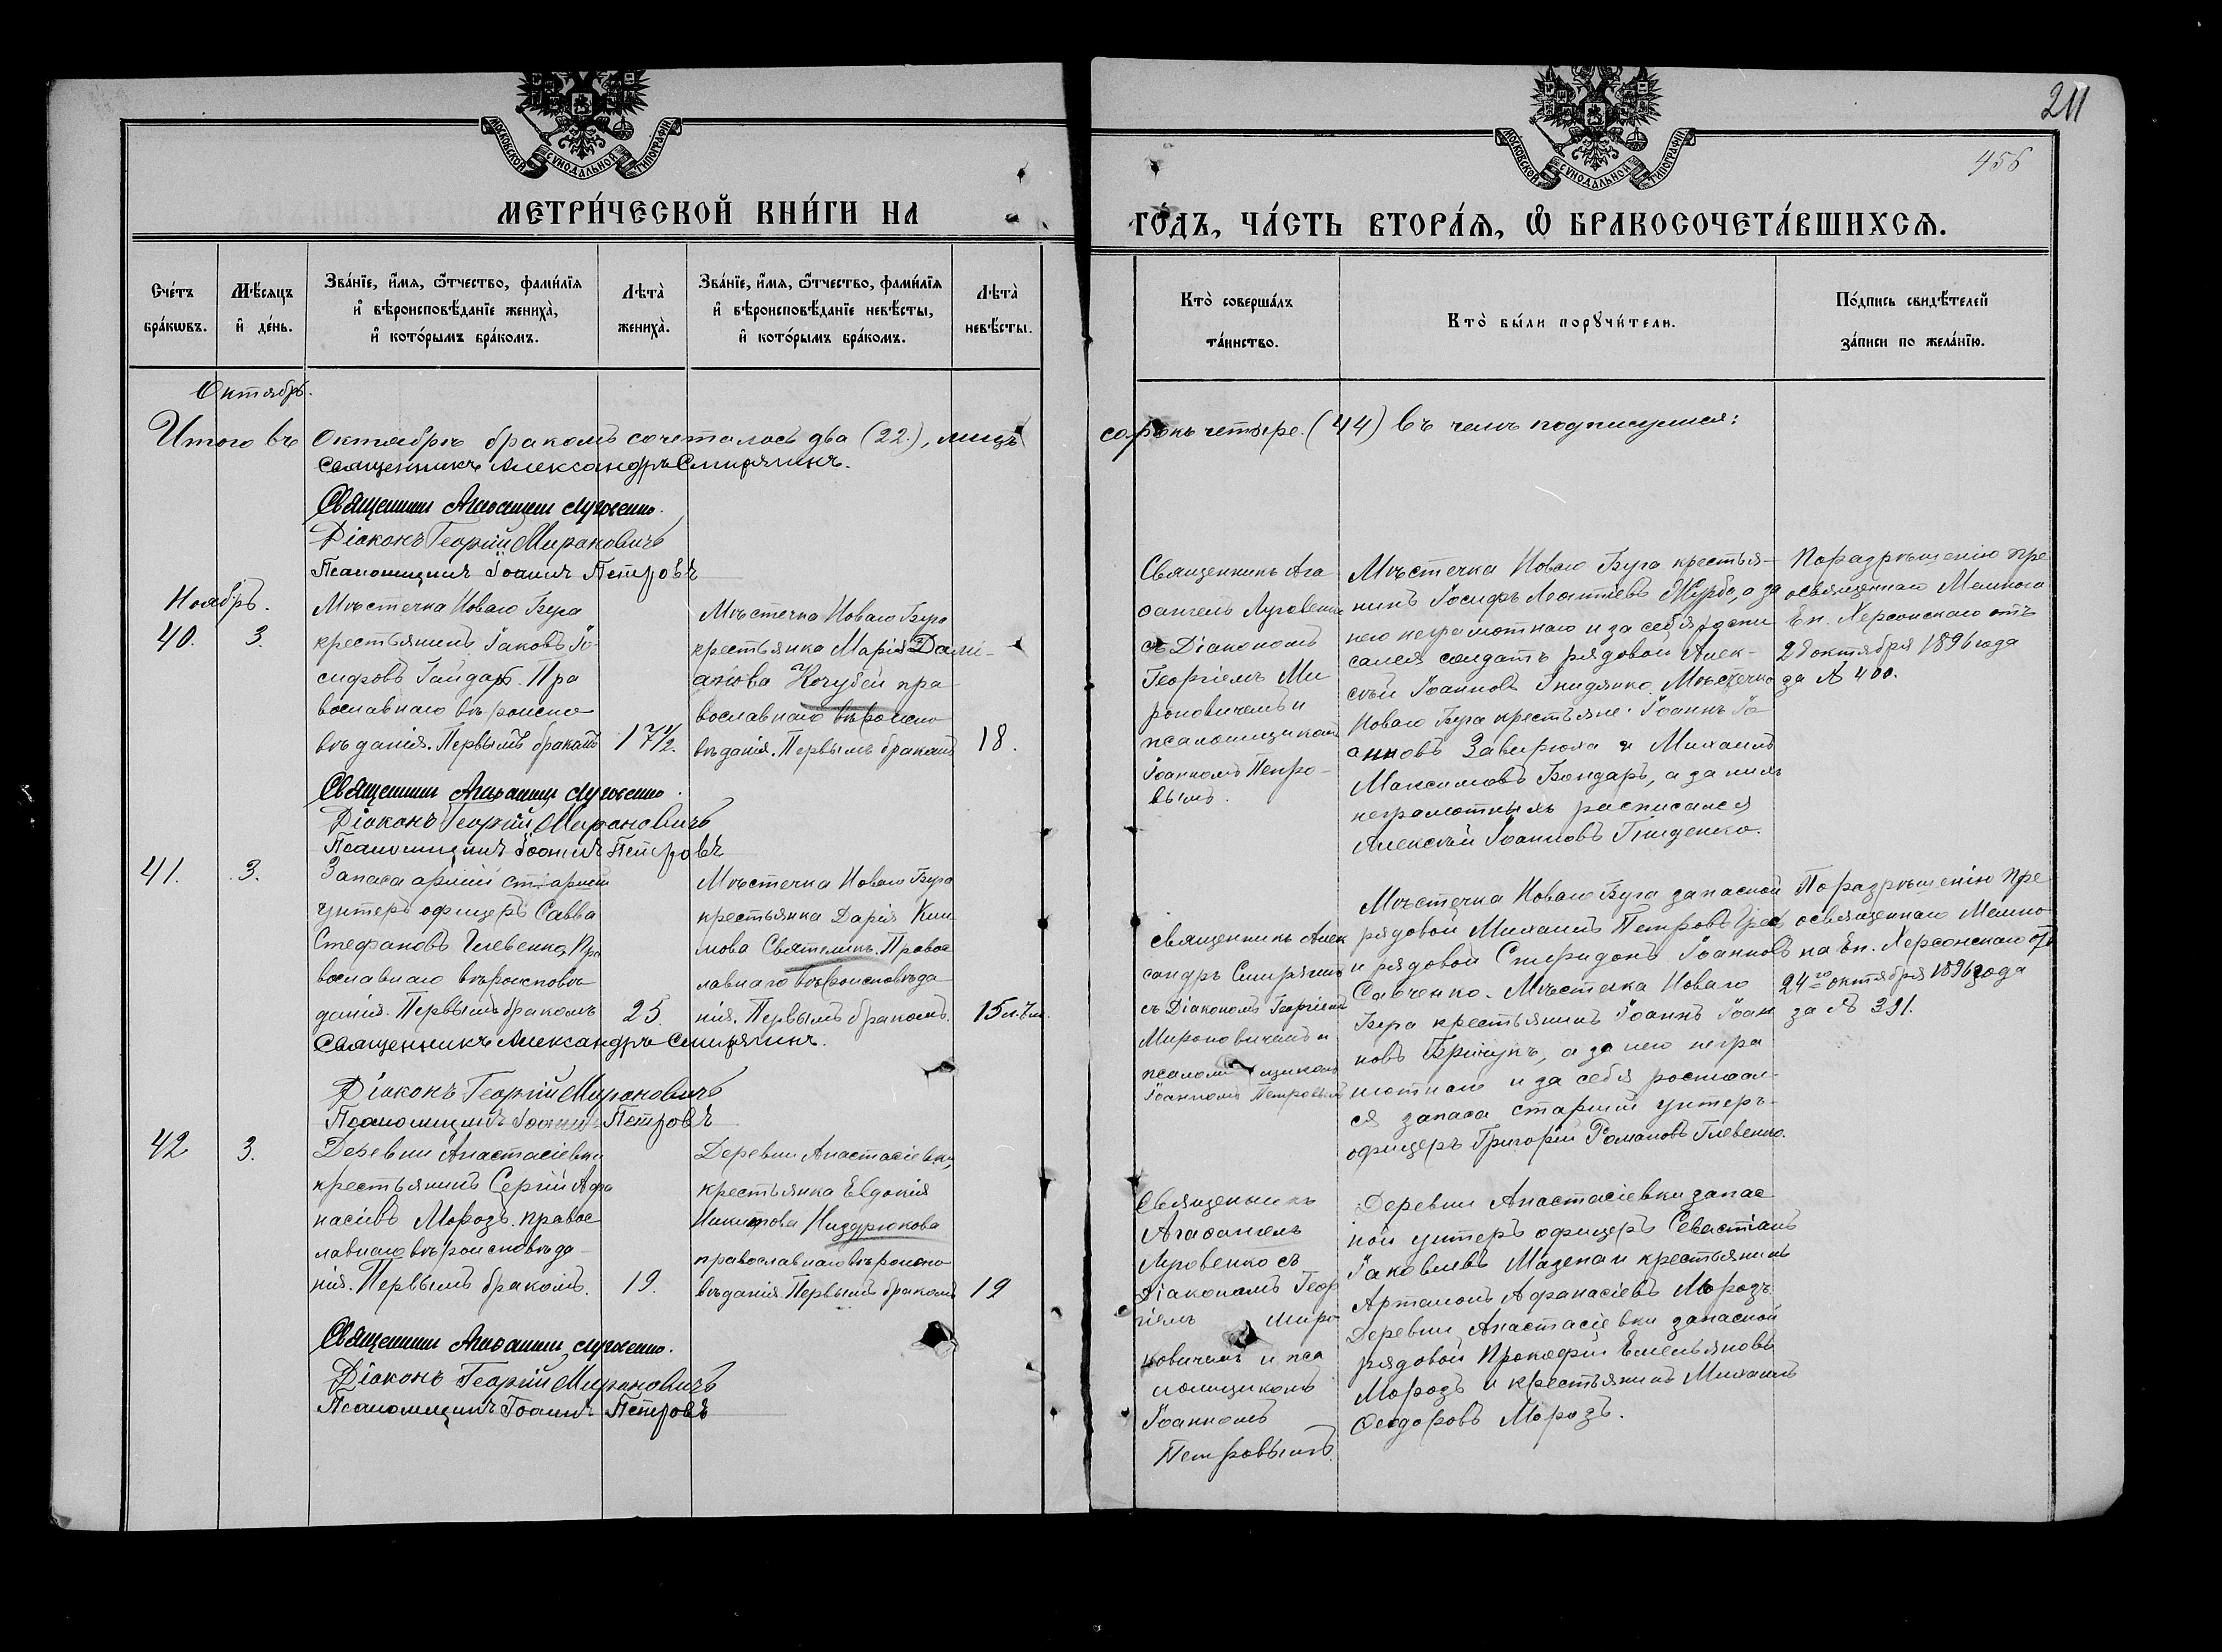 МОСКОВСКОЙ СѴНОДАЛЬНОЙ ТИПОГРАФІИ
МОСКОВСКОЙ СѴНОДАЛЬНОЙ ТИПОГРАФІИ
211
456
МЕТРИ́ЧЕСКОЙ КНИ́ГИ НА
ГО́ДЪ, ЧА́СТЬ ВТОРА́Ѧ, Ѽ БРАКОСОЧЕТА́ВШИХСѦ.
Сче́тъ бра́кѡвъ.
Мѣ́сѧцъ и҆ де́нь.
Зва́нїе, и҆́мѧ, ѻ҆́тчество, фами́лїѧ
и҆ вѣроисповѣ́данїе жениха̀,
и҆ кото́рымъ бра́комъ.
Лѣта̀ жениха̀.
Зва́нїе, и҆́мѧ, ѻ҆́тчество, фами́лїѧ
и҆ вѣроисповѣ́данїе невѣ́сты,
и҆ кото́рымъ бра́комъ.
Лѣта̀ невѣ́сты.
Кто̀ соверша́лъ та́инство.
Кто̀ бы́ли порꙋчи́тели.
По́дпись свидѣ́телей
за́писи по жела́нїю.
Октябрь.
Итого въ Октябрѣ бракомъ сочеталось два (22.), лицъ сорокъ четыре. (44) въ чемъ подписуемся:
Священникъ Александръ Смирягинъ.
Священникъ Агаѳангелъ Луговенко.
Діаконъ Георгій Мироновичъ
Псаломщикъ Іоаннъ Петровъ
Ноябрь.
40. 3.
Мѣстечка Новаго Буга
крестьянинъ Іаковъ Іо-
сифовъ Гайдарь. Пра
вославнаго вѣроиспо
вѣданія. Первымъ бракомъ
17½.
Мѣстечка Новаго Буга
крестьянка Марія Дамі-
анова Кочубей пра
вославнаго вѣроиспо
вѣданія. Первымъ бракомъ
18.
Священникъ Ага
ѳангелъ Луговенко
съ Діакономъ
Георгіемъ Ми
роновичемъ и
псаломщикомъ
Іоанномъ Петро-
вымъ.
Мѣстечка Новаго Буга крестья-
нинъ Іосифъ Леонтіевъ Журба, а за
него неграмотнаго и за себя роспи
сался солдатъ рядовой Алек-
сѣй Іоанновъ Гниденко. Мѣстечка
Новаго Буга крестьяне: Іоаннъ Іо
анновъ Завирюха и Михаилъ
Максимовъ Бондарь, а за нихъ
неграмотныхъ расписался
Алексѣй Іоанновъ Гниденко.
По разрѣшенію Пре
освященнаго Мемнона
Еп. Херсонскаго отъ
28 октября 1896 года
за № 400.
Священникъ Агаѳангелъ Луговенко.
Діаконъ Георгій Мироновичъ
Псаломщикъ Іоаннъ Петровъ
41. 3.
Запаса арміи старшій
унтеръ офицеръ Савва
Стефановъ Глевенко, Пра
вославнаго вѣроисповѣ
данія. Первымъ бракомъ
25.
Мѣстечка Новаго Буга
крестьянка Дарія Кли
мова Святеликъ. Правос
лавнаго вѣроисповѣда
нія. Первымъ бракомъ.
Священникъ Алек
сандръ Смирягинъ
съ Діакономъ Георгіемъ
Мироновичемъ и
псаломщикомъ
Іоанномъ Петровымъ
Мѣстечка Новаго Буга запасной
рядовой Михаилъ Петровъ
и рядовой Спиридонъ Іоанновъ
Савченко. Мѣстечка Новаго
Буга крестьянинъ Іоаннъ Іоан
новъ Бричукъ, а за него негра
мотнаго и за себя росписал-
ся запаса старшій унтеръ-
офицеръ Григорій Романовъ Глевенко.
По разрѣшенію Пре
освященнаго Мемно
на Еп. Херсонскаго отъ
24го октября 1896 года
за № 391.
Священникъ Александръ Смирягинъ.
Діаконъ Георгій Мироновичъ
Псаломщикъ Іоаннъ Петровъ
42 3.
Деревни Анастасіевки
крестьянинъ Сергій Афа
насіевъ Морозъ. Правос
лавнаго вѣроисповѣда-
нія. Первымъ бракомъ.
19.
Деревни Анастасіевки,
крестьянка Евдокія
Никитова Низдрюкова
православнаго вѣроиспо
вѣданія. Первымъ бракомъ
19
Священникъ
Агаѳангелъ
Луговенко съ
Діакономъ Геор
гіемъ Миро
новичемъ и пса
ломщикомъ
Іоанномъ
Петровымъ.
Деревни Анастасіевки запас
ной унтеръ офицеръ Севастіанъ
Іаковлевъ Мазепа и крестьянинъ
Артамонъ Афанасіевъ Морозъ.
Деревни Анастасіевки запасной
рядовой Прокофій Емельяновъ
Морозъ и крестьянинъ Михаилъ
Ѳеодоровъ Морозъ.
Священникъ Агаѳангелъ Луговенко.
Діаконъ Георгій Мироновичъ
Псаломщикъ Іоаннъ Петровъ